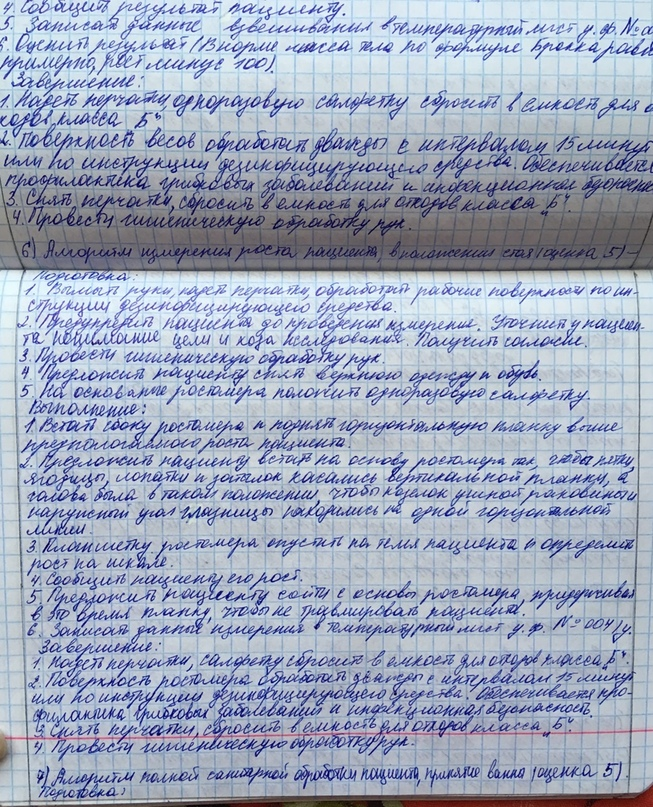 4. Сообщить результат пациенту.
5. Записать данные взвешивания в температурный лист у. ф. №
6. Оценить результат (В норме масса тела по формуле Брокка
примерно, рост минус 100).
Завершение:
1. Надеть перчатки, одноразовую салфетку сбросить в емкость для
класса „Б“
2. Поверхность весов обработать дважды с интервалом 15 минут
или по инструкции дезинфицирующего средства. Обеспечивается
профилактика грибковых заболеваний и инфекционная
3. Снять перчатки, сбросить в емкость для отходов класса „Б“.
4. Провести гигиеническую обработку рук.
6) Алгоритм измерения роста пациента, в положении стоя (оценка 5) -
Подготовка:
1. Вымыть руки, надеть перчатки, обработать рабочие поверхности по ин-
струкции дезинфицирующего средства.
2. Предупредить пациента до проведения измерения. Уточнить у пациен-
та понимание цели и хода исследования. Получить согласие.
3. Провести гигиеническую обработку рук.
4. Предложить пациенту снять верхнюю одежду и обувь.
5. На основание ростомера положить одноразовую салфетку.
Выполнение:
1. Встать сбоку ростомера и поднять горизонтальную планку выше
предпологаемого роста пациента.
2. Предложить пациенту встать на основу ростомера так, чтобы пятки,
ягодицы, лопатки и затылок касались вертикальной планки, а
голова была в таком положении, чтобы козелок ушной раковины и
наружный угол глазницы находились на одной горизонтальной
линии.
3. Планшетку ростомера опустить на темя пациента и определить
рост на шкале.
4. Сообщить пациенту его рост.
5. Предложить пациенту сойти с основы ростомера, придерживая
в это время планку, чтобы не травмировать пациента.
6. Записать данные измерения в температурный лист у. ф. №004/у.
Завершение:
1. Надеть перчатки, салфетку сбросить в емкость для отходов класса „Б“.
2. Поверхность ростомера обработать дважды с интервалом 15 минут
или по инструкции дезинфицирующего средства. Обеспечивается про-
филактика грибковых заболеваний и инфекционная безопасность.
3. Снять перчатки, сбросить в емкость для отходов класса „Б“.
4. Провести гигиеническую обработку рук.
7) Алгоритм полной санитарной обработки пациента, принятие ванны (оценка 5)
Подготовка: